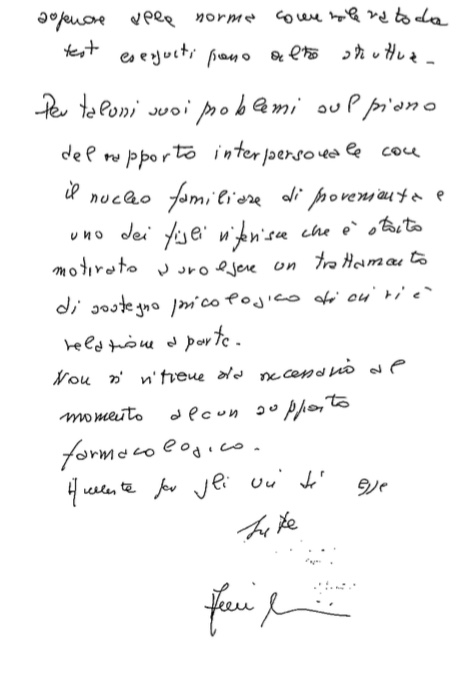 della norma come
test eseguiti presso altre strutture.
Per taluni suoi problemi sul piano
del rapporto interpersonale con
il nucleo familiare di provenienza e
uno dei figli riferisce che è stato
motivato a svolgere un trattamento
di sostegno psicologico di cui vi è
relazione a parte.
Non si ritiene sia necessario al
momento alcun supporto
farmacologico.
per gli usi di